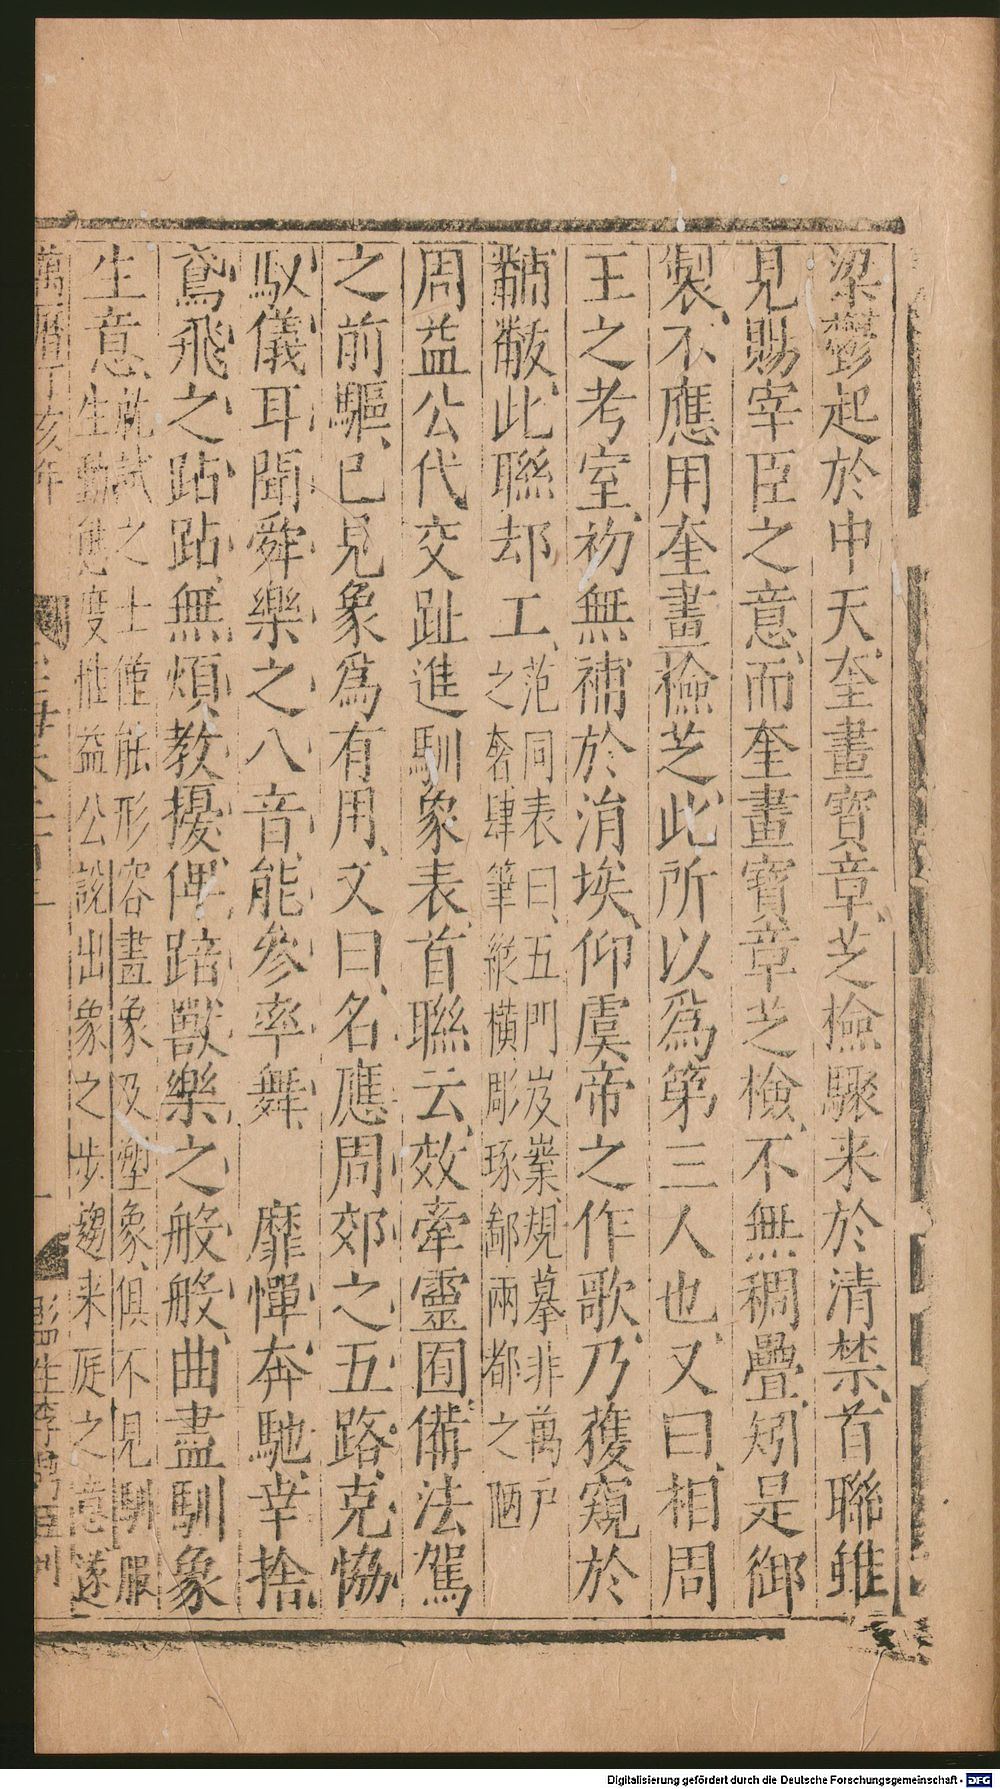 梁鬱起於中天奎畫寶章芝檢驟来於清禁首聯雖
見賜宰臣之意而奎畫寶章芝檢不無稠疊矧是御
製不應用奎畫檢芝此所以爲第三人也又曰相周
王之考室初無補於涓埃仰虞帝之作歌乃獲窺於
黼黻此聯却工范同表曰五門岌嶪規摹非萬戸
之奢肆筆縱橫彫琢鄙兩都之陋
周益公代交趾進馴象表首聯云效牽靈囿備法駕
之前驅已見象爲有用又曰名應周郊之五路克恊
馭儀耳聞舜樂之八音能參率舞 靡憚奔馳幸捨
鳶飛之跕跕無煩教擾俾踣獸樂之般般曲盡馴象
生意就試之士僅能形容畫象及塑象俱不見馴服
生動態度惟益公說出象之步趨来庭之意遂
萬曆丁亥年
監生李
刊
Digitalisierung gefördert durch die Deutsche Forschungsgemeinschaft - DFG